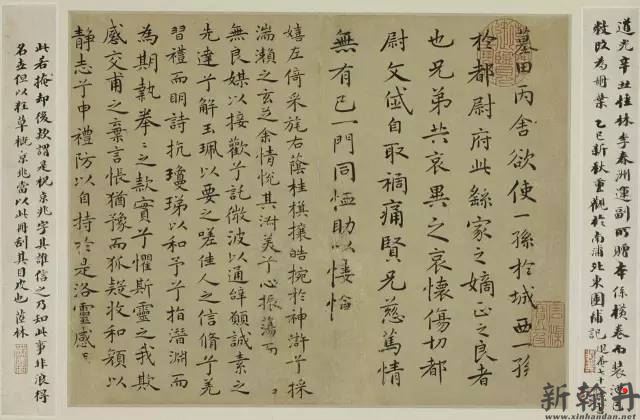 道光辛丑桂林李春洲運副所贈本係橫卷而裝潢
敝改為冊葉 乙巳新秋重觀於南浦北東園補記
墓田丙舍欲使一孫於城西一孫
於都尉府此繇家之嫡正之良者
也兄弟共哀異之哀懷傷切都
尉文岱自取禍痛賢兄慈篤情
無有已一門同恤助以悽愴
嬉左倚采旄右蔭桂旗攘皓捥於神滸兮採
湍瀨之玄芝余情悅其淑美兮心振蕩而
無良媒以接歡兮託微波以通辭願誠素之
先達兮解玉珮以要之嗟佳人之信脩兮羌
習禮而明詩抗瓊珶以和予兮指潛淵而
為期執拳〻之款實兮懼斯靈之我欺
感交甫之棄言悵猶豫而狐疑收和顏以
靜志兮申禮防以自持於是洛靈感
此若掩却後款謂是祝京兆字其誰信之乃知此事非浪得
名也但以粗草概京兆當以此冊刮其目皮也 茞林
新翰丹
www.xinhandan.net